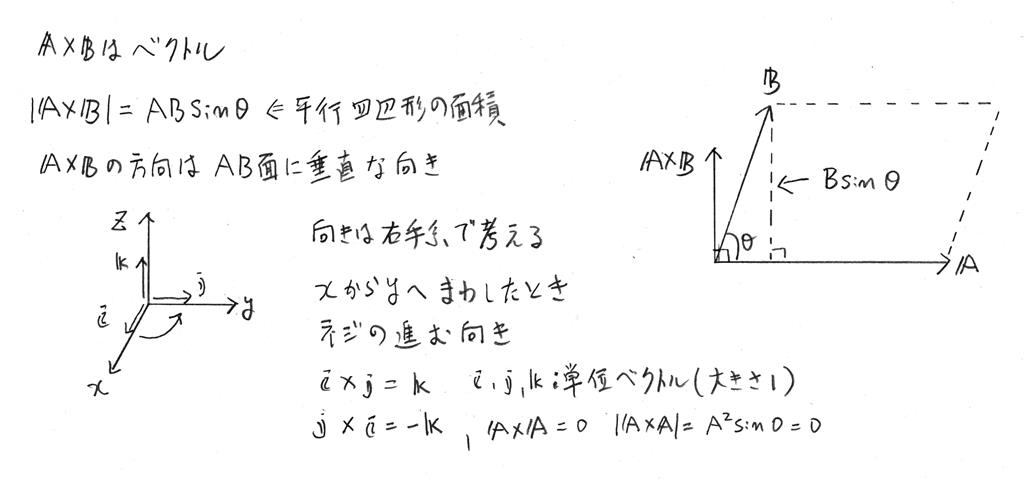 A×Bはベクトル
|A×B| = AB sinθ ⇐ 平行四辺形の面積
A×Bの方向は AB面に垂直な向き
B
A×B
B sinθ
θ
A
z
k
j
y
i
x
向きは右手系で考える
xからyへまわしたとき
ネジの進む向き
i × j = k i, j, k : 単位ベクトル(大きさ1)
j × i = -k , A×A = 0 |A×A| = A² sin 0 = 0